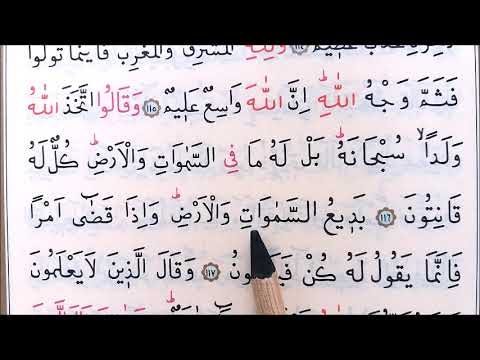 عَظ۪يمٌ ﴿١١٤﴾ وَلِلّٰهِ الْمَشْرِقُ وَالْمَغْرِبُ فَاَيْنَمَا تُوَلُّوا
فَثَمَّ وَجْهُ اللّٰهِۜ اِنَّ اللّٰهَ وَاسِعٌ عَل۪يمٌ ﴿١١٥﴾ وَقَالُوا اتَّخَذَ اللّٰهُ
وَلَداًۙ سُبْحَانَهُۜ بَلْ لَهُ مَا فِي السَّمٰوَاتِ وَالْاَرْضِۜ كُلٌّ لَهُ
قَانِتُونَ ﴿١١٦﴾ بَد۪يعُ السَّمٰوَاتِ وَالْاَرْضِۜ وَاِذَا قَضٰٓى اَمْراً
فَاِنَّمَا يَقُولُ لَهُ كُنْ ﴿١١٧﴾ وَقَالَ الَّذ۪ينَ لَا يَعْلَمُونَ